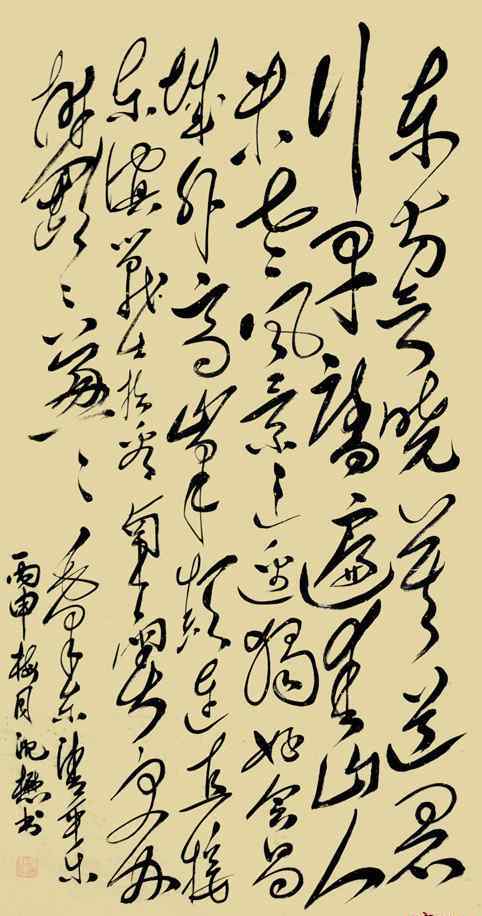 东方欲晓莫道君
行早踏遍青山人
未老風景这边獨好会昌
城外高峰颠连直接
东溟戰士指看南粤更加
郁々葱々
毛泽东清平乐
丙申梅月沈懋书